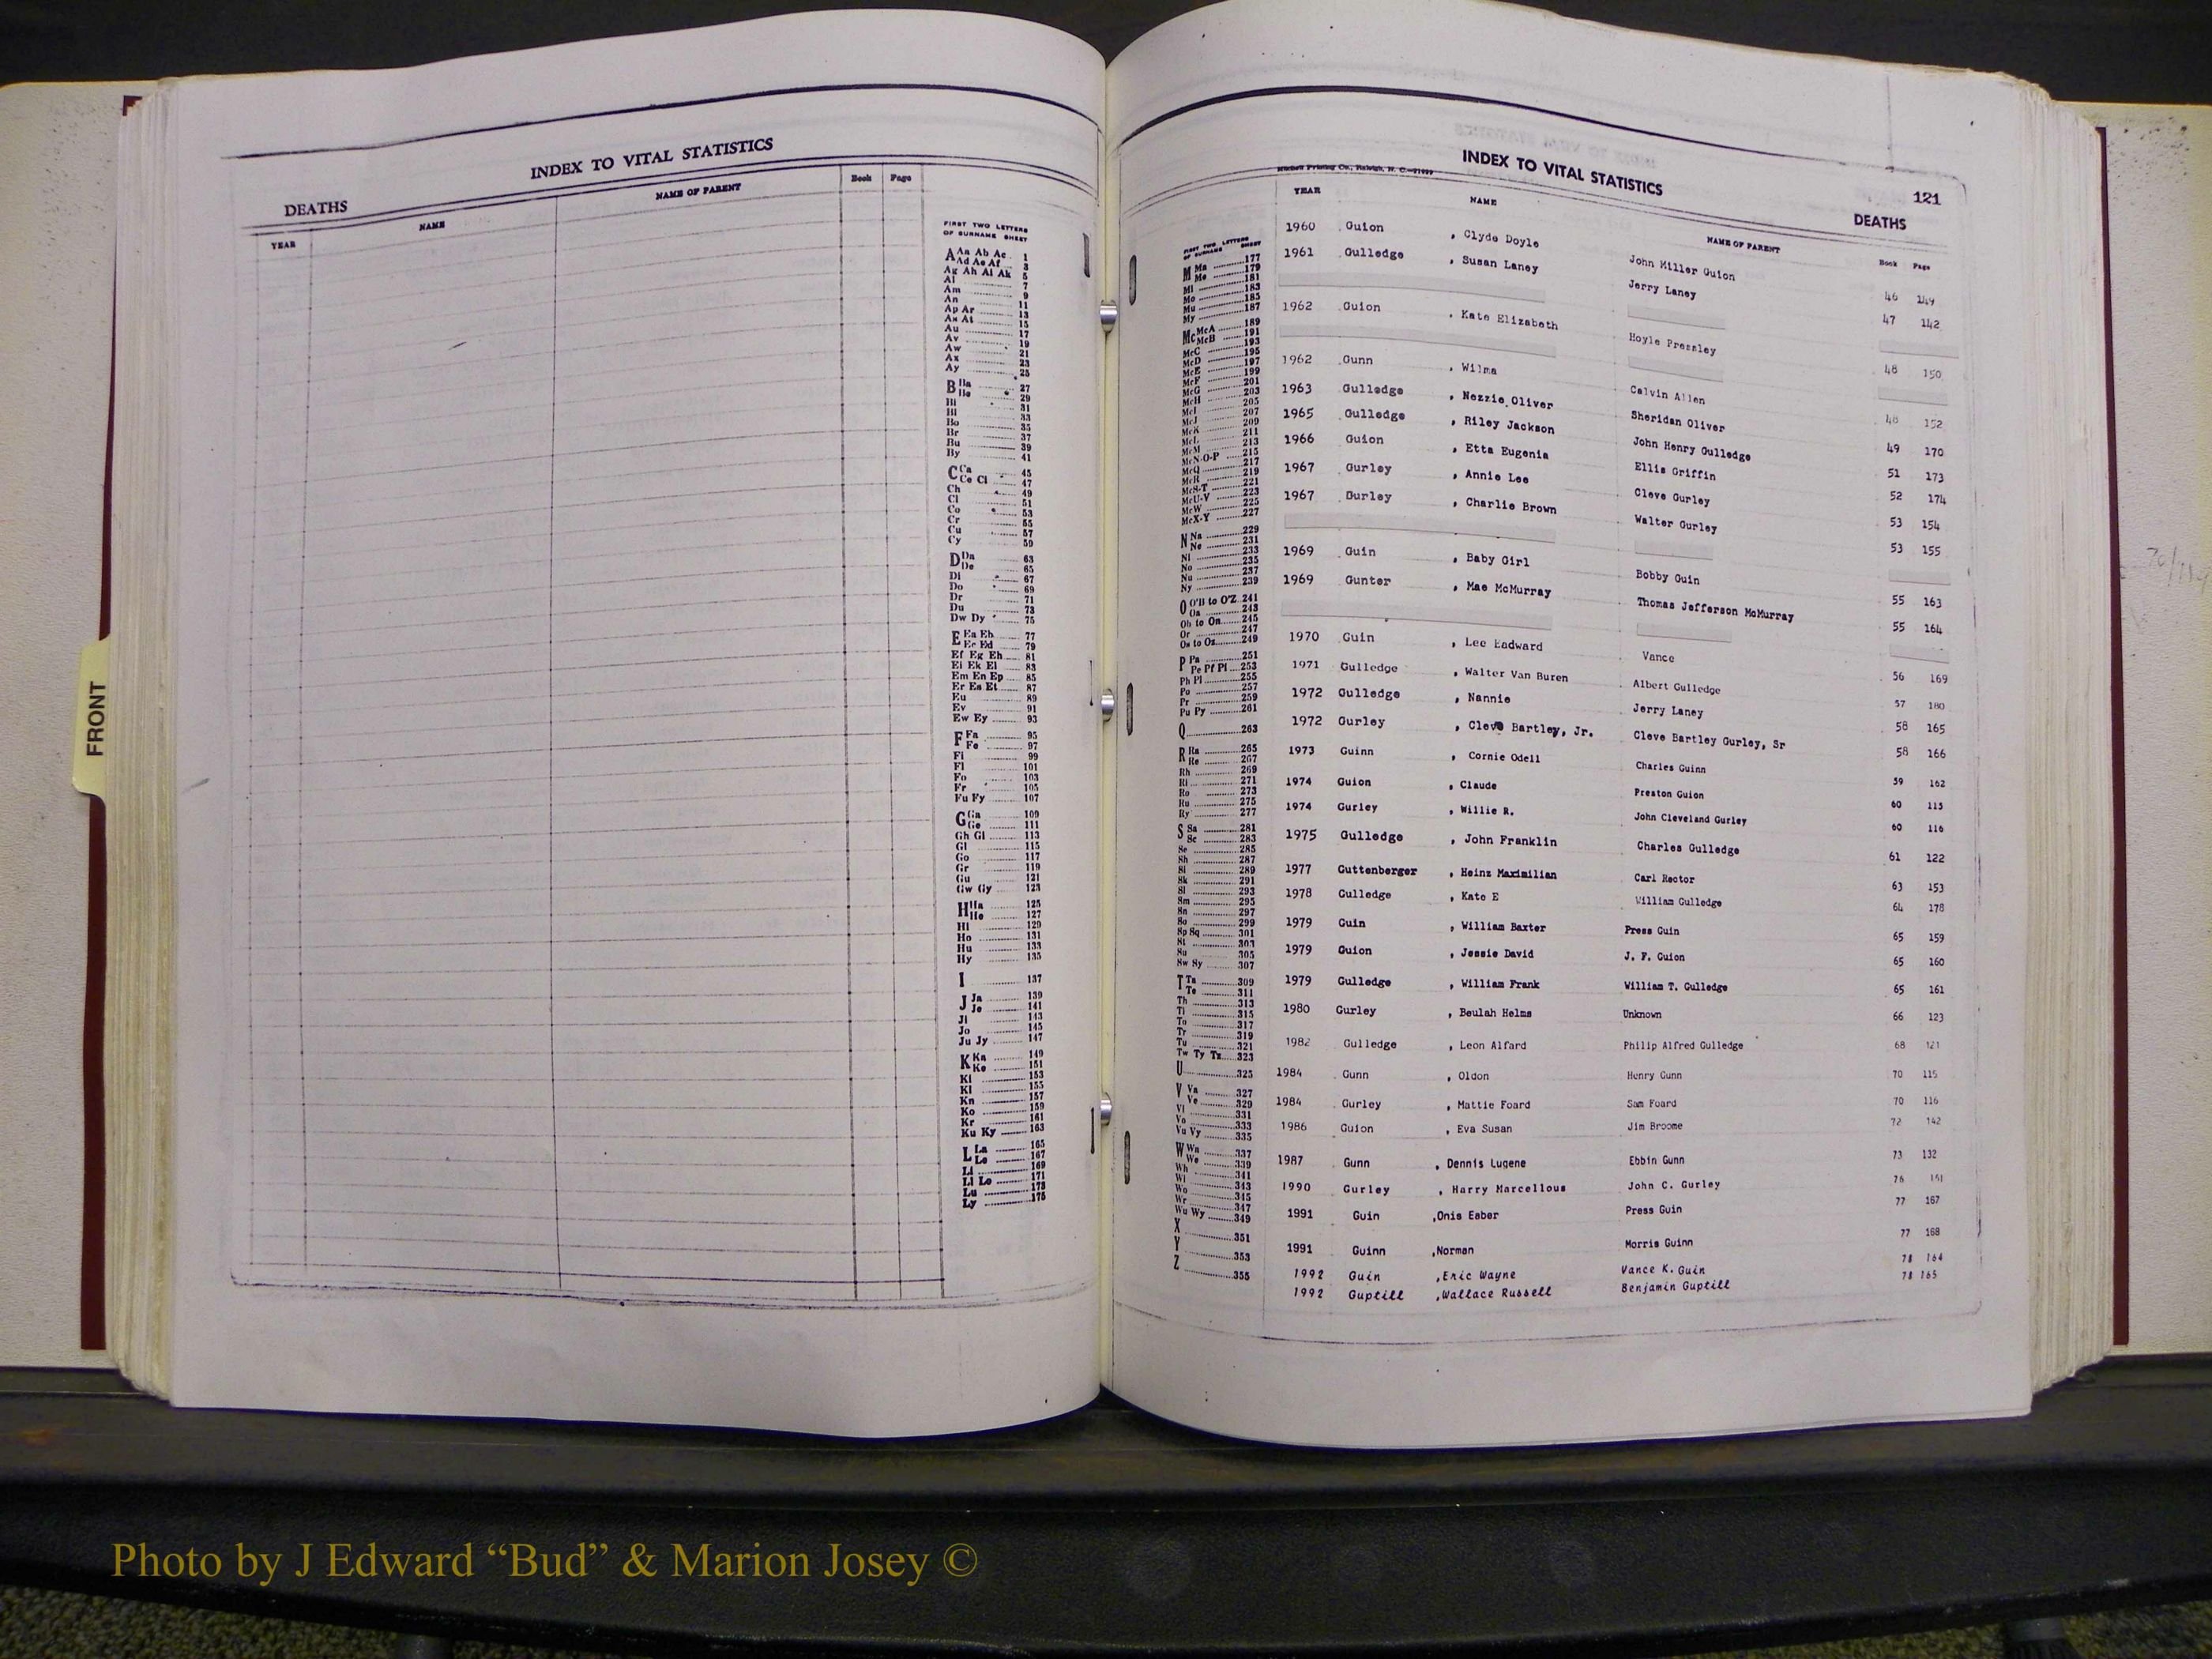 INDEX TO VITAL STATISTICS
DEATHS
YEAR NAME NAME OF PARENT Book Page
FIRST TWO LETTERS
OF SURNAME SHEET
A Aa Ab Ac 1
Ad Ae Af 3
Ag Ah Ai Ak 5
Al 7
Am 9
An 11
Ap Ar 13
As At 15
Au 17
Av 19
Aw 21
Ax 23
Ay 25
B Ba 27
Be 29
Bi 31
Bl 33
Bo 35
Br 37
Bu 39
By 41
C Ca 45
Ce Ci 47
Ch 49
Cl 51
Co 53
Cr 55
Cu 57
Cy 59
D Da 63
De 65
Di 67
Do 69
Dr 71
Du 73
Dw Dy 75
E Ea Eb 77
Ec Ed 79
Ef Eg Eh 81
Ei Ek El 83
Em En Ep 85
Er Es Et 87
Eu 89
Ev 91
Ew Ey 93
F Fa 95
Fe 97
Fi 99
Fl 101
Fo 103
Fr 105
Fu Fy 107
G Ga 109
Ge 111
Gh Gi 113
Gl 115
Go 117
Gr 119
Gu 121
Gw Gy 123
H Ha 125
He 127
Hi 129
Ho 131
Hu 133
Hy 135
I 137
J Ja 139
Je 141
Ji 143
Jo 145
Ju Jy 147
K Ka 149
Ke 151
Ki 153
Kl 155
Kn 157
Ko 159
Kr 161
Ku Ky 163
L La 165
Le 167
Li 169
Ll Lo 171
Lu 173
Ly 175
FRONT
Mitchell Printing Co., Raleigh, N. C.
INDEX TO VITAL STATISTICS
121
DEATHS
YEAR NAME NAME OF PARENT Book Page
FIRST TWO LETTERS
OF SURNAME SHEET
M Ma 177
Me 179
Mi 181
Mo 183
Mu 185
My 187
Mc McA 189
McB 191
McC 193
McD 195
McE 197
McF 199
McG 201
McH 203
McI 205
McJ 207
McK 209
McL 211
McM 213
McN-O-P 215
McQ 217
McR 219
McS-T 221
McU-V 223
McW 225
McX-Y 227
N Na 229
Ne 231
Ni 233
No 235
Nu 237
Ny 239
O O'B to O'Z 241
Oa 243
Ob to On 245
Or 247
Os to Oz 249
P Pa 251
Pe Pf Pi 253
Ph Pl 255
Po 257
Pr 259
Pu Py 261
Q 263
R Ra 265
Re 267
Rh 269
Ri 271
Ro 273
Ru 275
Ry 277
S Sa 281
Sc 283
Se 285
Sh 287
Si 289
Sk 291
Sl 293
Sm 295
Sn 297
So 299
Sp Sq 301
St 303
Su 305
Sw Sy 307
T Ta 309
Te 311
Th 313
Ti 315
To 317
Tr 319
Tu 321
Tw Ty Tz 323
U 325
V Va 327
Ve 329
Vi 331
Vo 333
Vu Vy 335
W Wa 337
We 339
Wh 341
Wi 343
Wo 345
Wr 347
Wu Wy 349
X 351
Y 353
Z 355
1960 Guion , Clyde Doyle John Miller Guion 46 149
1961 Gulledge , Susan Laney Jerry Laney 47 142
1962 Guion , Kate Elizabeth Hoyle Pressley 48 150
1962 Gunn , Wilma Calvin Allen 48 152
1963 Gulledge , Nezzie Oliver Sheridan Oliver 49 170
1965 Gulledge , Riley Jackson John Henry Gulledge 51 173
1966 Guion , Etta Eugenia Ellis Griffin 52 174
1967 Gurley , Annie Lee Cleve Gurley 53 154
1967 Gurley , Charlie Brown Walter Gurley 53 155
1969 Guin , Baby Girl Bobby Guin 55 163
1969 Gunter , Mae McMurray Thomas Jefferson McMurray 55 164
1970 Guin , Lee Eadward Vance 56 169
1971 Gulledge , Walter Van Buren Albert Gulledge 57 180
1972 Gulledge , Nannie Jerry Laney 58 165
1972 Gurley , Cleve Bartley, Jr. Cleve Bartley Gurley, Sr 58 166
1973 Guinn , Cornie Odell Charles Guinn 59 162
1974 Guion , Claude Preston Guion 60 115
1974 Gurley , Willie R. John Cleveland Gurley 60 116
1975 Gulledge , John Franklin Charles Gulledge 61 122
1977 Guttenberger , Heinz Maximilian Carl Rector 63 153
1978 Gulledge , Kate E William Gulledge 64 178
1979 Guin , William Baxter Press Guin 65 159
1979 Guion , Jessie David J. F. Guion 65 160
1979 Gulledge , William Frank William T. Gulledge 65 161
1980 Gurley , Beulah Helms Unknown 66 123
1982 Gulledge , Leon Alfard Philip Alfred Gulledge 68 121
1984 Gunn , Oldon Henry Gunn 70 115
1984 Gurley , Mattie Foard Sam Foard 70 116
1986 Guion , Eva Susan Jim Broome 72 142
1987 Gunn , Dennis Lugene Ebbin Gunn 73 132
1990 Gurley , Harry Marcellous John C. Gurley 76 161
1991 Guin ,Onis Esber Press Guin 77 167
1991 Guinn ,Norman Morris Guinn 77 168
1992 Guin ,Eric Wayne Vance K. Guin 78 164
1992 Guptill ,Wallace Russell Benjamin Guptill 78 165
Photo by J Edward “Bud” & Marion Josey ©